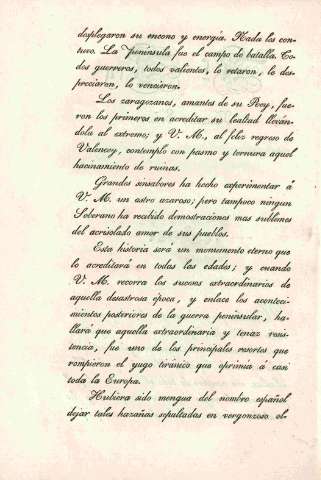 desplegaron su encono y energía. Nada les con-
tuvo. La Península fue el campo de batalla. To-
dos guerreros, todos valientes, lo retaron, lo des-
preciaron, lo vencieron.
Los zaragozanos, amantes de su Rey, fue-
ron los primeros en acreditar su lealtad lleván-
dola al extremo; y V. M., al feliz regreso de
Valencey, contempló con pasmo y ternura aquel
hacinamiento de ruinas.
Grandes sinsabores ha hecho experimentar á
V. M. un astro azaroso; pero tampoco ningun
Soberano ha recibido demostraciones mas sublimes
del acrisolado amor de sus pueblos.
Esta historia será un monumento eterno que
lo acreditará en todas las edades; y cuando
V. M. recorra los sucesos extraordinarios de
aquella desastrosa época, y enlace los aconteci-
mientos posteriores de la guerra peninsular, ha-
llará que aquella extraordinaria y tenaz resis-
tencia, fue uno de los principales resortes que
rompieron el yugo tiránico que oprimia a casi
toda la Europa.
Hubiera sido mengua del nombre español
dejar tales hazañas sepultadas en vergonzoso ol-